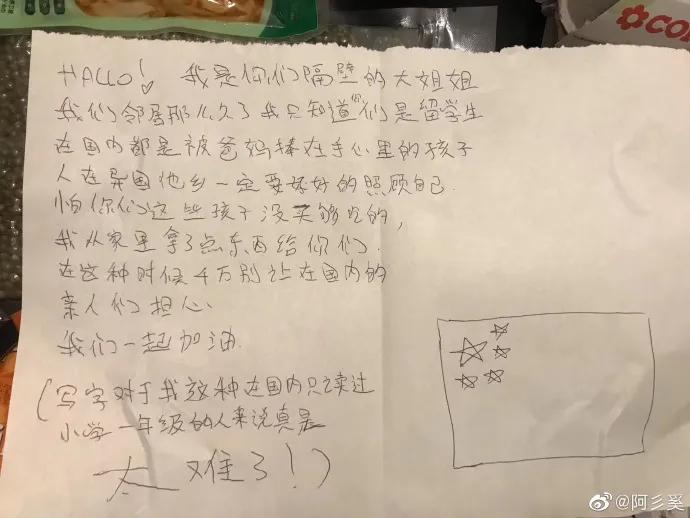 HALLO! 我是你们隔壁的大姐姐
我们邻居那么久了我只知道你们是留学生
在国内都是被爸妈捧在手心里的孩子
人在异国他乡一定要好好的照顾自己.
怕你们这些孩子没买够吃的,
我从家里拿了点东西给你们.
在这种时候千万别让在国内的
亲人们担心.
我们一起加油.
(写字对于我这种在国内只读过
小学一年级的人来说真是
太难了!)
@阿彡奚